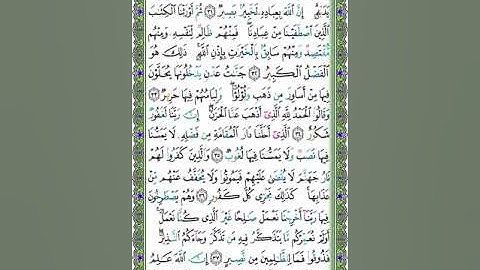 يَدَيْهِ إِنَّ ٱللَّهَ بِعِبَادِهِۦ لَخَبِيرٌۢ بَصِيرٌ ٣١ ثُمَّ أَوْرَثْنَا ٱلْكِتَٰبَ
ٱلَّذِينَ ٱصْطَفَيْنَا مِنْ عِبَادِنَا فَمِنْهُمْ ظَالِمٌ لِّنَفْسِهِۦ وَمِنْهُم
مُّقْتَصِدٌ وَمِنْهُمْ سَابِقٌۢ بِٱلْخَيْرَٰتِ بِإِذْنِ ٱللَّهِ ذَٰلِكَ هُوَ
ٱلْفَضْلُ ٱلْكَبِيرُ ٣٢ جَنَّٰتُ عَدْنٍ يَدْخُلُونَهَا يُحَلَّوْنَ
فِيهَا مِنْ أَسَاوِرَ مِن ذَهَبٍ وَلُؤْلُؤًا وَلِبَاسُهُمْ فِيهَا حَرِيرٌ ٣٣
وَقَالُوا۟ ٱلْحَمْدُ لِلَّهِ ٱلَّذِىٓ أَذْهَبَ عَنَّا ٱلْحَزَنَ إِنَّ رَبَّنَا لَغَفُورٌ
شَكُورٌ ٣٤ ٱلَّذِىٓ أَحَلَّنَا دَارَ ٱلْمُقَامَةِ مِن فَضْلِهِۦ لَا يَمَسُّنَا
فِيهَا نَصَبٌ وَلَا يَمَسُّنَا فِيهَا لُغُوبٌ ٣٥ وَٱلَّذِينَ كَفَرُوا۟ لَهُمْ
نَارُ جَهَنَّمَ لَا يُقْضَىٰ عَلَيْهِمْ فَيَمُوتُوا۟ وَلَا يُخَفَّفُ عَنْهُم مِّنْ
عَذَابِهَا كَذَٰلِكَ نَجْزِى كُلَّ كَفُورٍ ٣٦ وَهُمْ يَصْطَرِخُونَ
فِيهَا رَبَّنَآ أَخْرِجْنَا نَعْمَلْ صَٰلِحًا غَيْرَ ٱلَّذِى كُنَّا نَعْمَلُ
أَوَلَمْ نُعَمِّرْكُم مَّا يَتَذَكَّرُ فِيهِ مَن تَذَكَّرَ وَجَآءَكُمُ ٱلنَّذِيرُ
فَذُوقُوا۟ فَمَا لِلظَّٰلِمِينَ مِن نَّصِيرٍ ٣٧ إِنَّ ٱللَّهَ عَٰلِمُ